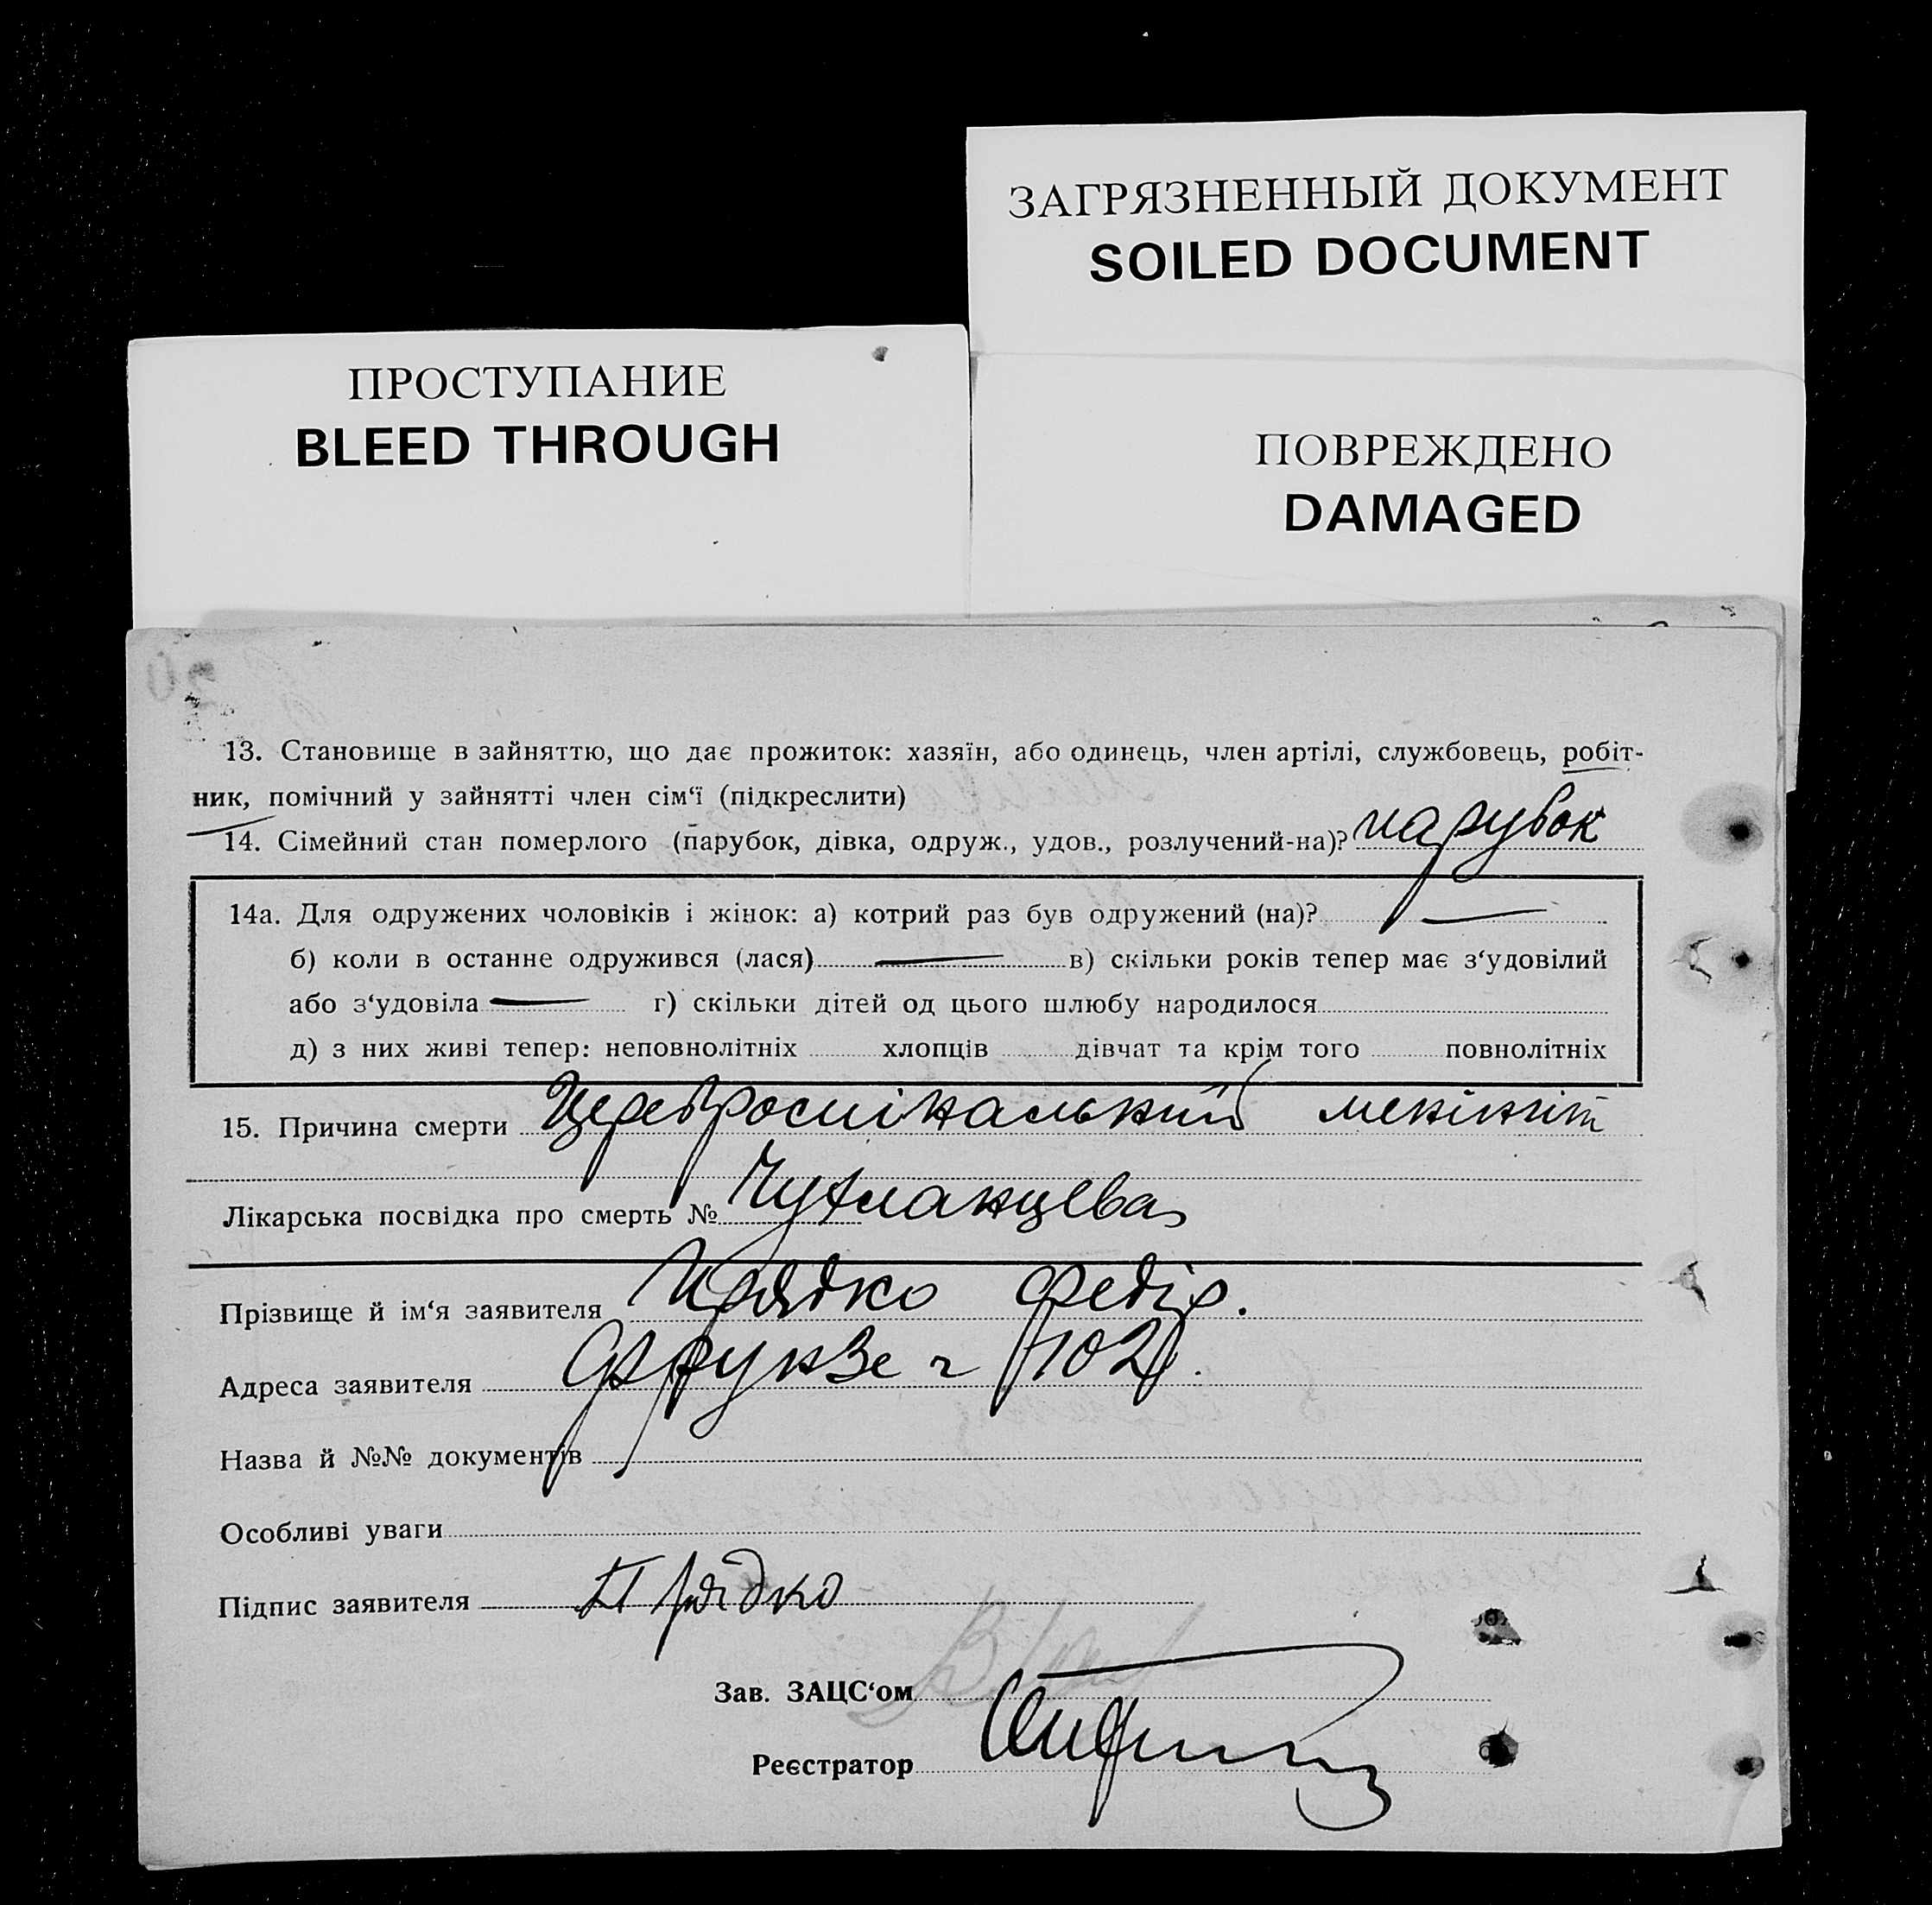 ЗАГРЯЗНЕННЫЙ ДОКУМЕНТ
SOILED DOCUMENT
ПРОСТУПАНИЕ
BLEED THROUGH
ПОВРЕЖДЕНО
DAMAGED
13. Становище в зайняттю, що дає прожиток: хазяїн, або одинець, член артілі, службовець, робіт-
ник, помічний у зайнятті член сім‘ї (підкреслити)
14. Сімейний стан померлого (парубок, дівка, одруж., удов., розлучений-на)? парубок
14а. Для одружених чоловіків і жінок: а) котрий раз був одружений (на)? —
б) коли в останне одружився (лася) — в) скільки років тепер має з‘удовілий
або з‘удовіла — г) скільки дітей од цього шлюбу народилося
д) з них живі тепер: неповнолітніх хлопців дівчат та крім того повнолітніх
15. Причина смерти Цереброспінальний менінгіт
Лікарська посвідка про смерть №
Прізвище й ім‘я заявителя Прядко Федір.
Адреса заявителя Фрунзе 102.
Назва й №№ документів
Особливі уваги
Підпис заявителя Прядко
Зав. ЗАЦС‘ом
Реєстратор